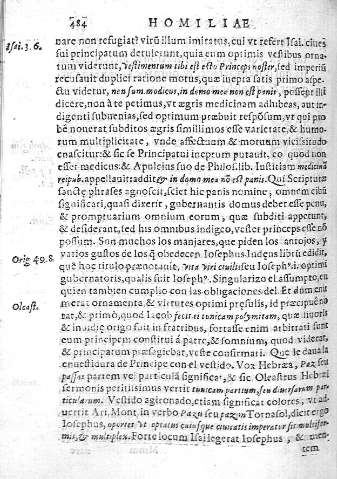 484 HOMILIAE
Isai. 3. 6.
nare non refugiat? virũ illum imitatus, cui vt refert Isai. ciues
sui principatum detulerunt, quia eum optimis vestibus ornatum
viderunt, Vestimentum tibi est esto Princeps noster, sed imperiũ
recusauit duplici ratione motus, quæ inepta satis primo aspectu
videtur, non sum medicus, in domo mea non est panis, posset illi
dicere, non à te petimus, vt ægris medicinam adhibeas, aut indigenti
subuenias, sed optimum præbuit responsum, vt qui probè
nouerat subditos ægris simillimos esse varietate, & humorum
multiplicitate, vnde affectuum & morum vicissitudo
enascitur: & sic se Principatui ineptum putauit, eo quod non
esset medicus: & Apoleius suo de Philos. lib. Iustitiam medicinã
reipub. appellauit: addit, in domo mea nõ est panis. Qui Scripturæ
sanctæ phrases agnoscit, sciet hic panis nomine, omnem cibũ
significari, quasi dixerit, gubernantis domus debet esse penu,
& promptuarium omnium eorum, quæ subditi appetunt,
& desiderant, sed his omnibus indigeo, vester princeps esse nõ
possum. Son muchos los manjares, que piden los antojos, y
Orig 49. 8.
varios gustos de los q̃ obedecen. Iosephus Iudeus librũ edidit,
què hoc titulo prænotauit, vita viri ciuilis seu Iosephi. i. optimi
gubernatoris, qualis fuit Iosephus. Singularizo el assumpto, en
quien tambien cumplio con las obligaciones del. Et dum enumerat
ornamenta, & virtutes optimi præsulis, id præcipuè notat,
Oleast.
& primò, quod Iacob fecit ei tunicam polymitam, quæ liuoris
& inuidiæ origo fuit in fratribus, fortasse enim arbitrati sunt
eum principem constitui à patre, & somnium, quod viderat,
& principatum præsagiebat, veste confirmari. Que le daua la
enuestidura de Principe con el vestido. Vox Hebræa,
partem vel particulã significat, & sic Oleastrus Hebræi
sermonis peritissimus vertit tunicam partium, seu diuersarum particularum.
Vestido agironado, etiam significat colores, vt aduertit
Ari. Mont. in verbo
Tornasol, dicit ergo
Iosephus, oportet vt optatus cuiusque ciuitatis imperator sit multiformis,
& multiplex. Forte locum Isai. legerat Iosephus, &
tem